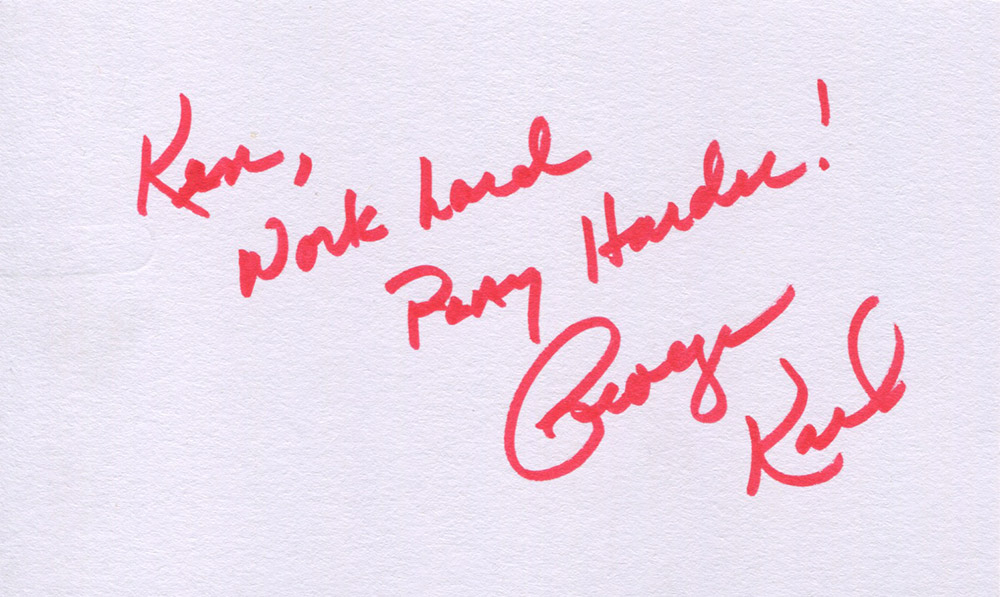 Ken,
Work hard
Pray Harder!
George Karl